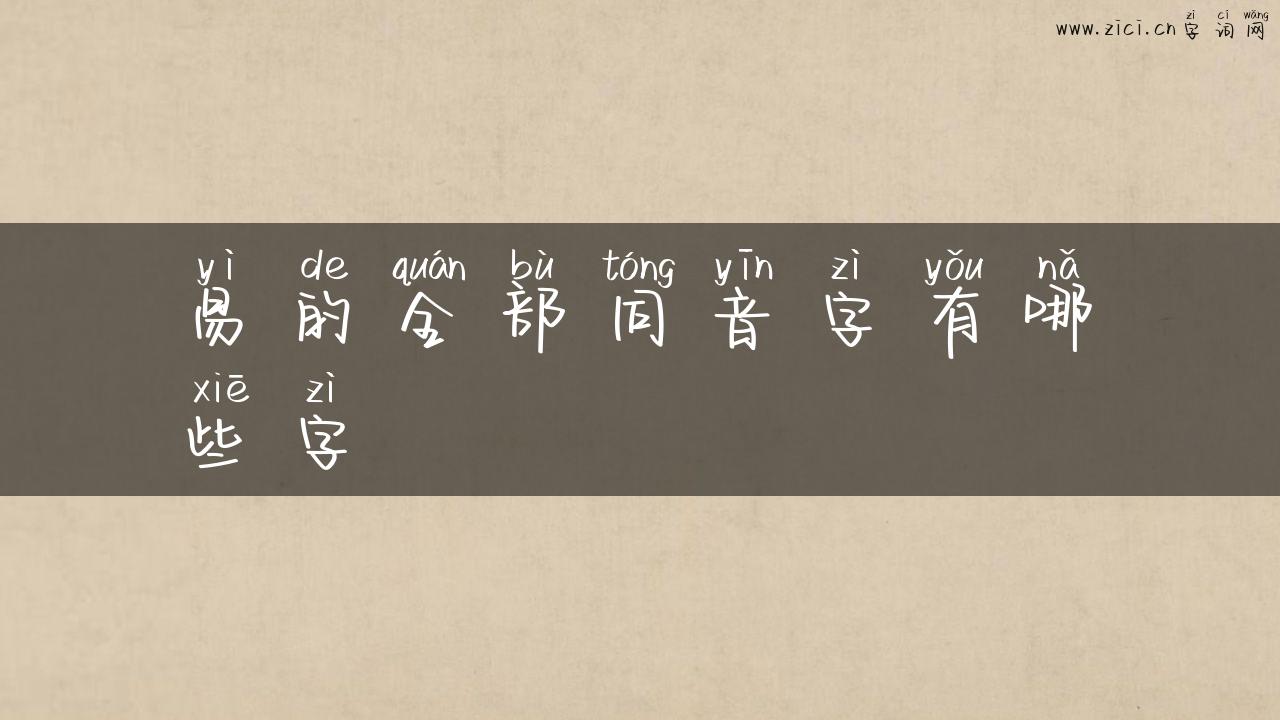 zì cí wǎng
www.zici.cn 字词网
yì de quán bù tóng yīn zì yǒu nǎ
易的全部同音字有哪
xiē zì
些字